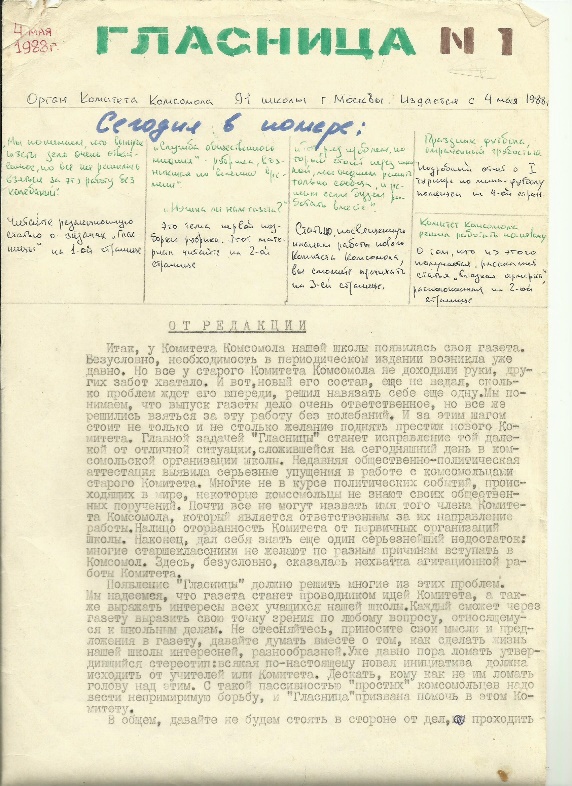 4 мая
1988г.
ГЛАСНИЦА N 1
Орган Комитета Комсомола 91 школы г Москвы. Издается с 4 мая 1988г.
Сегодня в номере:
Мы понимаем, что выпуск
газеты дело очень ответ-
ственное, но все же решились
взяться за эту работу без
колебаний.
Читайте редакционную
статью о задачах "Глас-
ницы" на 1-ой странице
"Служба общественного
мнения" - рубрика, воз-
никшая по велению вре-
мени
"Нужна ли нам газета?"
Это тема первой под-
борки рубрики. Этот мате-
риал читайте на 2-ой
странице
только сообща, и ре-
работать вместе".
Статью, посвященную
началу работы нового
Комитета Комсомола,
вы сможете прочитать
на 3-ей странице.
Праздник футбола,
омраченный грубостью
Подробный отчет о I
турнире по мини-футболу
помещен на 4-ой стран.
Комитет Комсомола
решил работать по-новому
О том, что из этого
получается, рассказывает
статья
расположенная на 2-ой
странице
ОТ РЕДАКЦИИ
Итак, у Комитета Комсомола нашей школы появилась своя газета.
Безусловно, необходимость в периодическом издании возникла уже
давно. Но все у старого Комитета Комсомола не доходили руки, дру-
гих забот хватало. И вот, новый его состав, еще не ведая, сколь-
ко проблем ждет его впереди, решил навязать себе еще одну.Мы по-
нимаем, что выпуск газеты дело очень ответственное, но все же
решились взяться за эту работу без колебаний. И за этим шагом
стоит не только и не столько желание поднять престиж нового Ко-
митета. Главной задачей "Гласницы" станет исправление той дале-
кой от отличной ситуации,сложившейся на сегодняшний день в ком-
сомольской организации школы. Недавняя общественно-политическая
аттестация выявила серьезные упущения в работе с комсомольцами
старого Комитета. Многие не в курсе политических событий, проис-
ходящих в мире, некоторые комсомольцы не знают своих обществен-
ных поручений. Почти все не могут назвать имя того члена Комите-
та Комсомола, который является ответственным за их направление
работы.Налицо оторванность Комитета от первичных организаций
школы. Наконец, дал себя знать еще один серьезнейший недостаток:
многие старшеклассники не желают по разным причинам вступать в
Комсомол. Здесь, безусловно, сказалась нехватка агитационной ра-
боты Комитета.
Появление "Гласницы" должно решить многие из этих проблем.
Мы надеемся, что газета станет проводником идей Комитета, а так-
же выражать интересы всех учащихся нашей школы.Каждый сможет через
газету выразить свою точку зрения по любому вопросу, относящему-
ся к школьным делам. Не стесняйтесь, приносите свои мысли и пред-
ложения в газету, давайте думать вместе о том, как сделать жизнь
нашей школы интересней, разнообразней.Уже давно пора ломать утвер-
дившийся стереотип:всякая по-настоящему новая инициатива должна
исходить от учителей или Комитета. Дескать, кому как не им ломать
голову над этим. С такой пассивностью "простых" комсомольцев надо
вести непримиримую борьбу, и "Гласница"призвана помочь в этом Ко-
митету.
В общем, давайте не будем стоять в стороне от дел, проходить